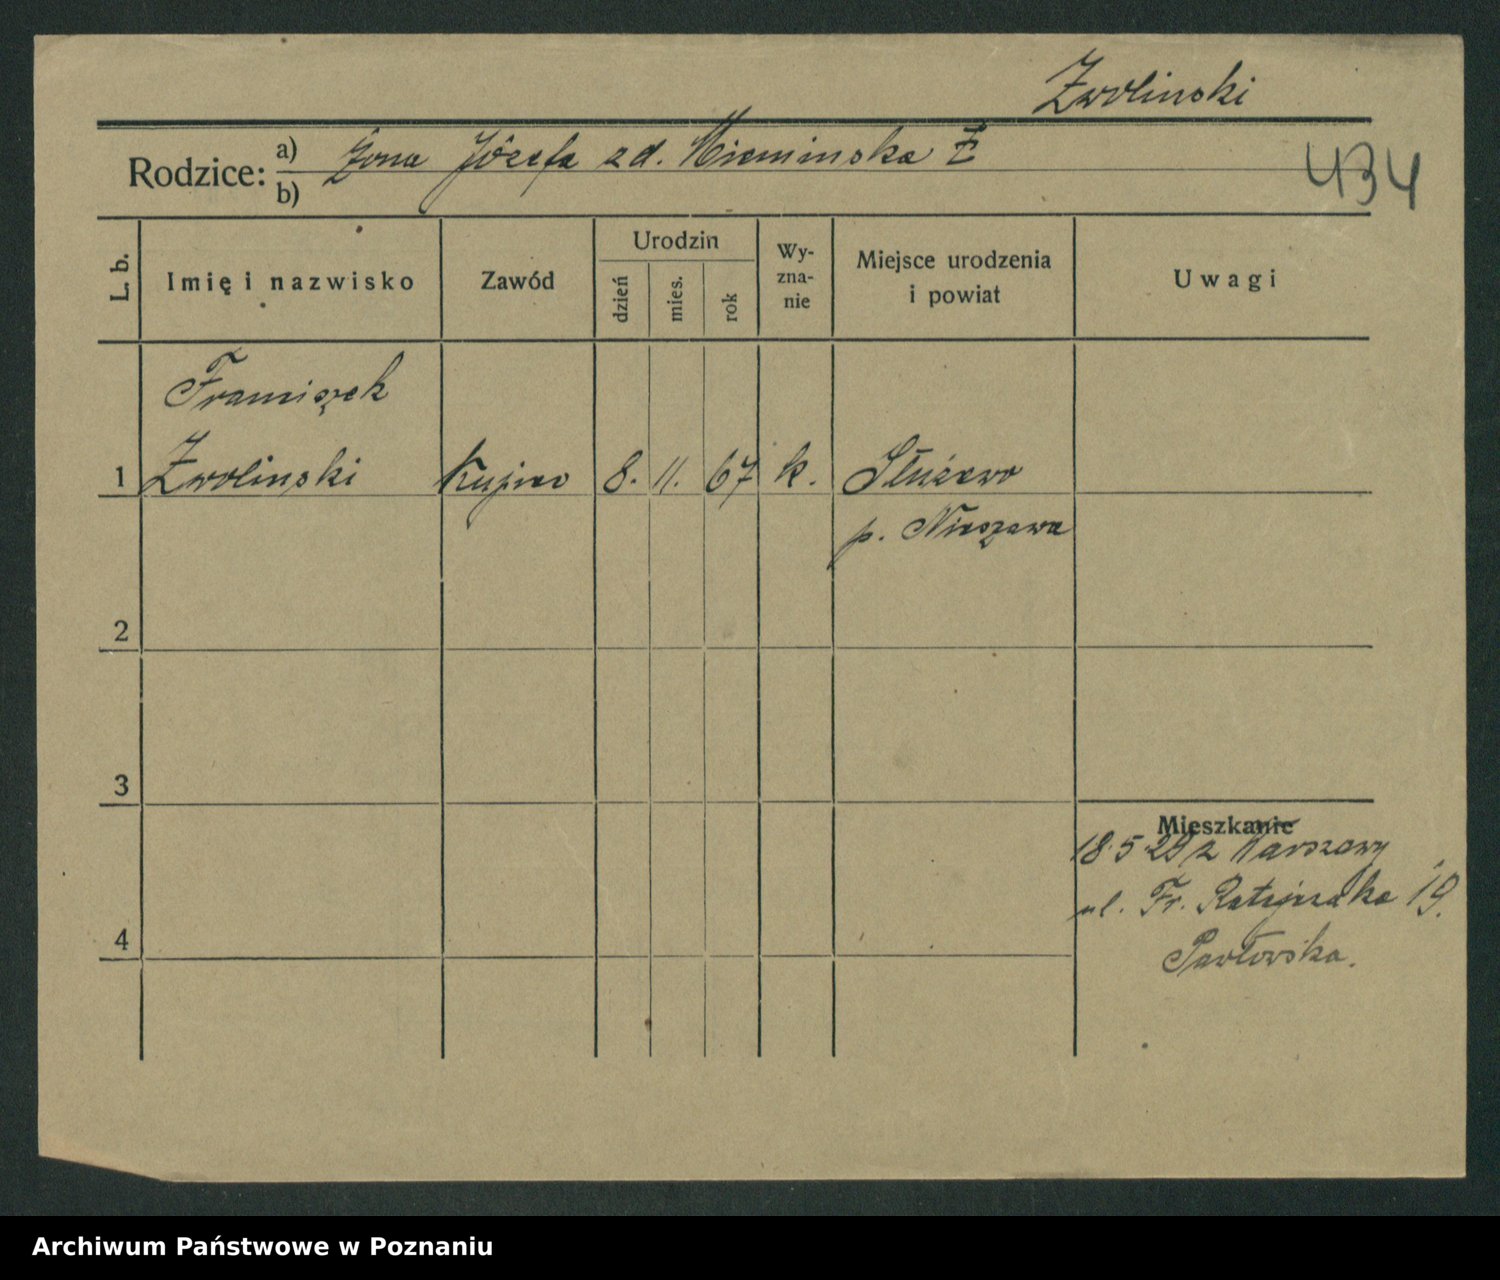 Zwolinski
434
Rodzice: a) Żona Józefa zd. Nieminska
b)
L. b.
Imię i nazwisko
Zawód
Urodzin
dzień
mies.
rok
Wy-
zna-
nie
Miejsce urodzenia
i powiat
Uwagi
Franciszek
1 Zwolinski Kupiec 8. 11. 67 k. Służewo
p. Nieszawa
2
3
4
Mieszkanie
18 5 29 z Warszawy
ul. Fr. Ratajczaka 19.
Pawłowska.
Archiwum Państwowe w Poznaniu